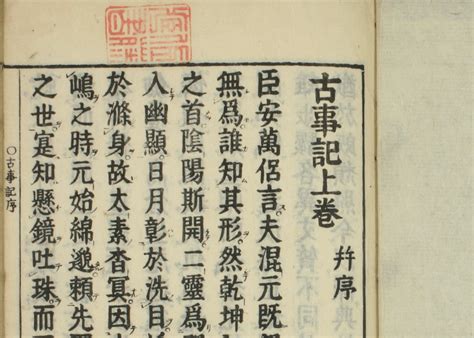 古事記上卷
幷序
臣安萬侶言夫混元既
無爲誰知其形然乾坤
之首陰陽斯開二靈爲
入幽顯日月彰於洗目
於滌身故太素杳冥因
嶋之時元始綿邈頼先
之世寔知懸鏡吐珠而
○古事記序